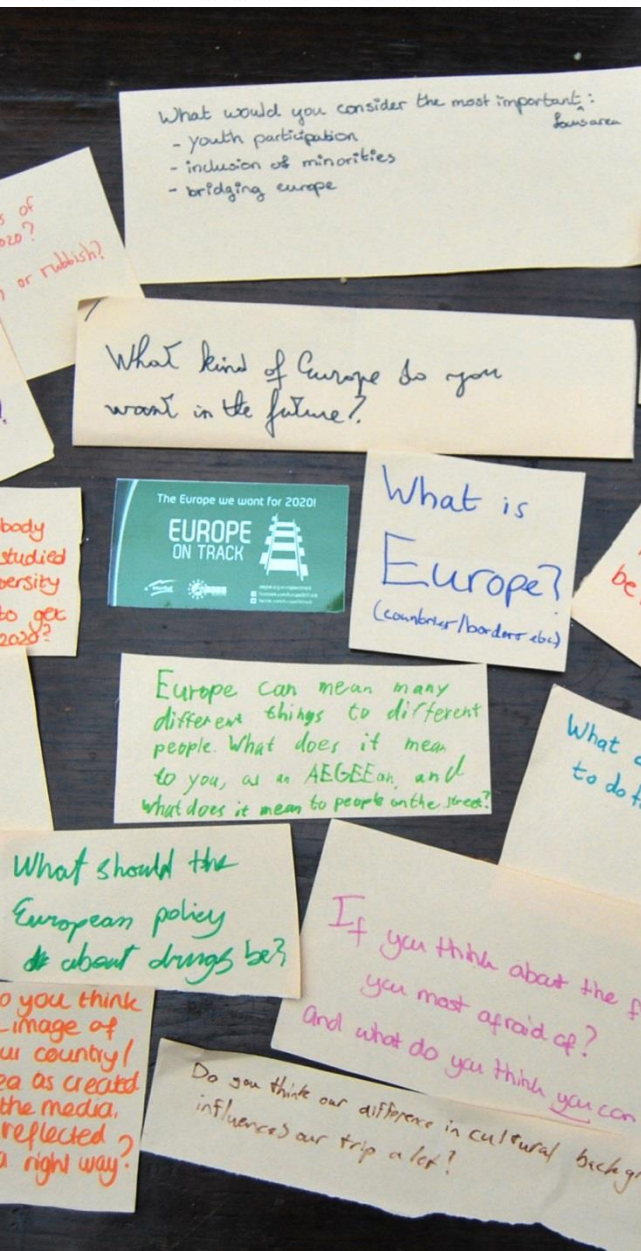 What would you consider the most important:
focus area
- youth participation
- inclusion of minorities
- bridging europe
s of
2020?
or rubbish?
What kind of Europe do you
want in the future?
The Europe we want for 2020!
EUROPE
ON TRACK
What is
Europe?
(countries/borders etc)
body
studied
versity
to get
2020?
be
Europe can mean many
different things to different
people. What does it mean
to you, as an AEGEEan, and
what does it mean to people on the street?
What
to do f
What should the
European policy
about drugs be?
If you think about the f
you most afraid of?
and what do you think you can
o you think
image of
ur country/
ea as created
the media,
reflected
a right way?
Do you think our difference in cultural backgr
influences our trip a lot?